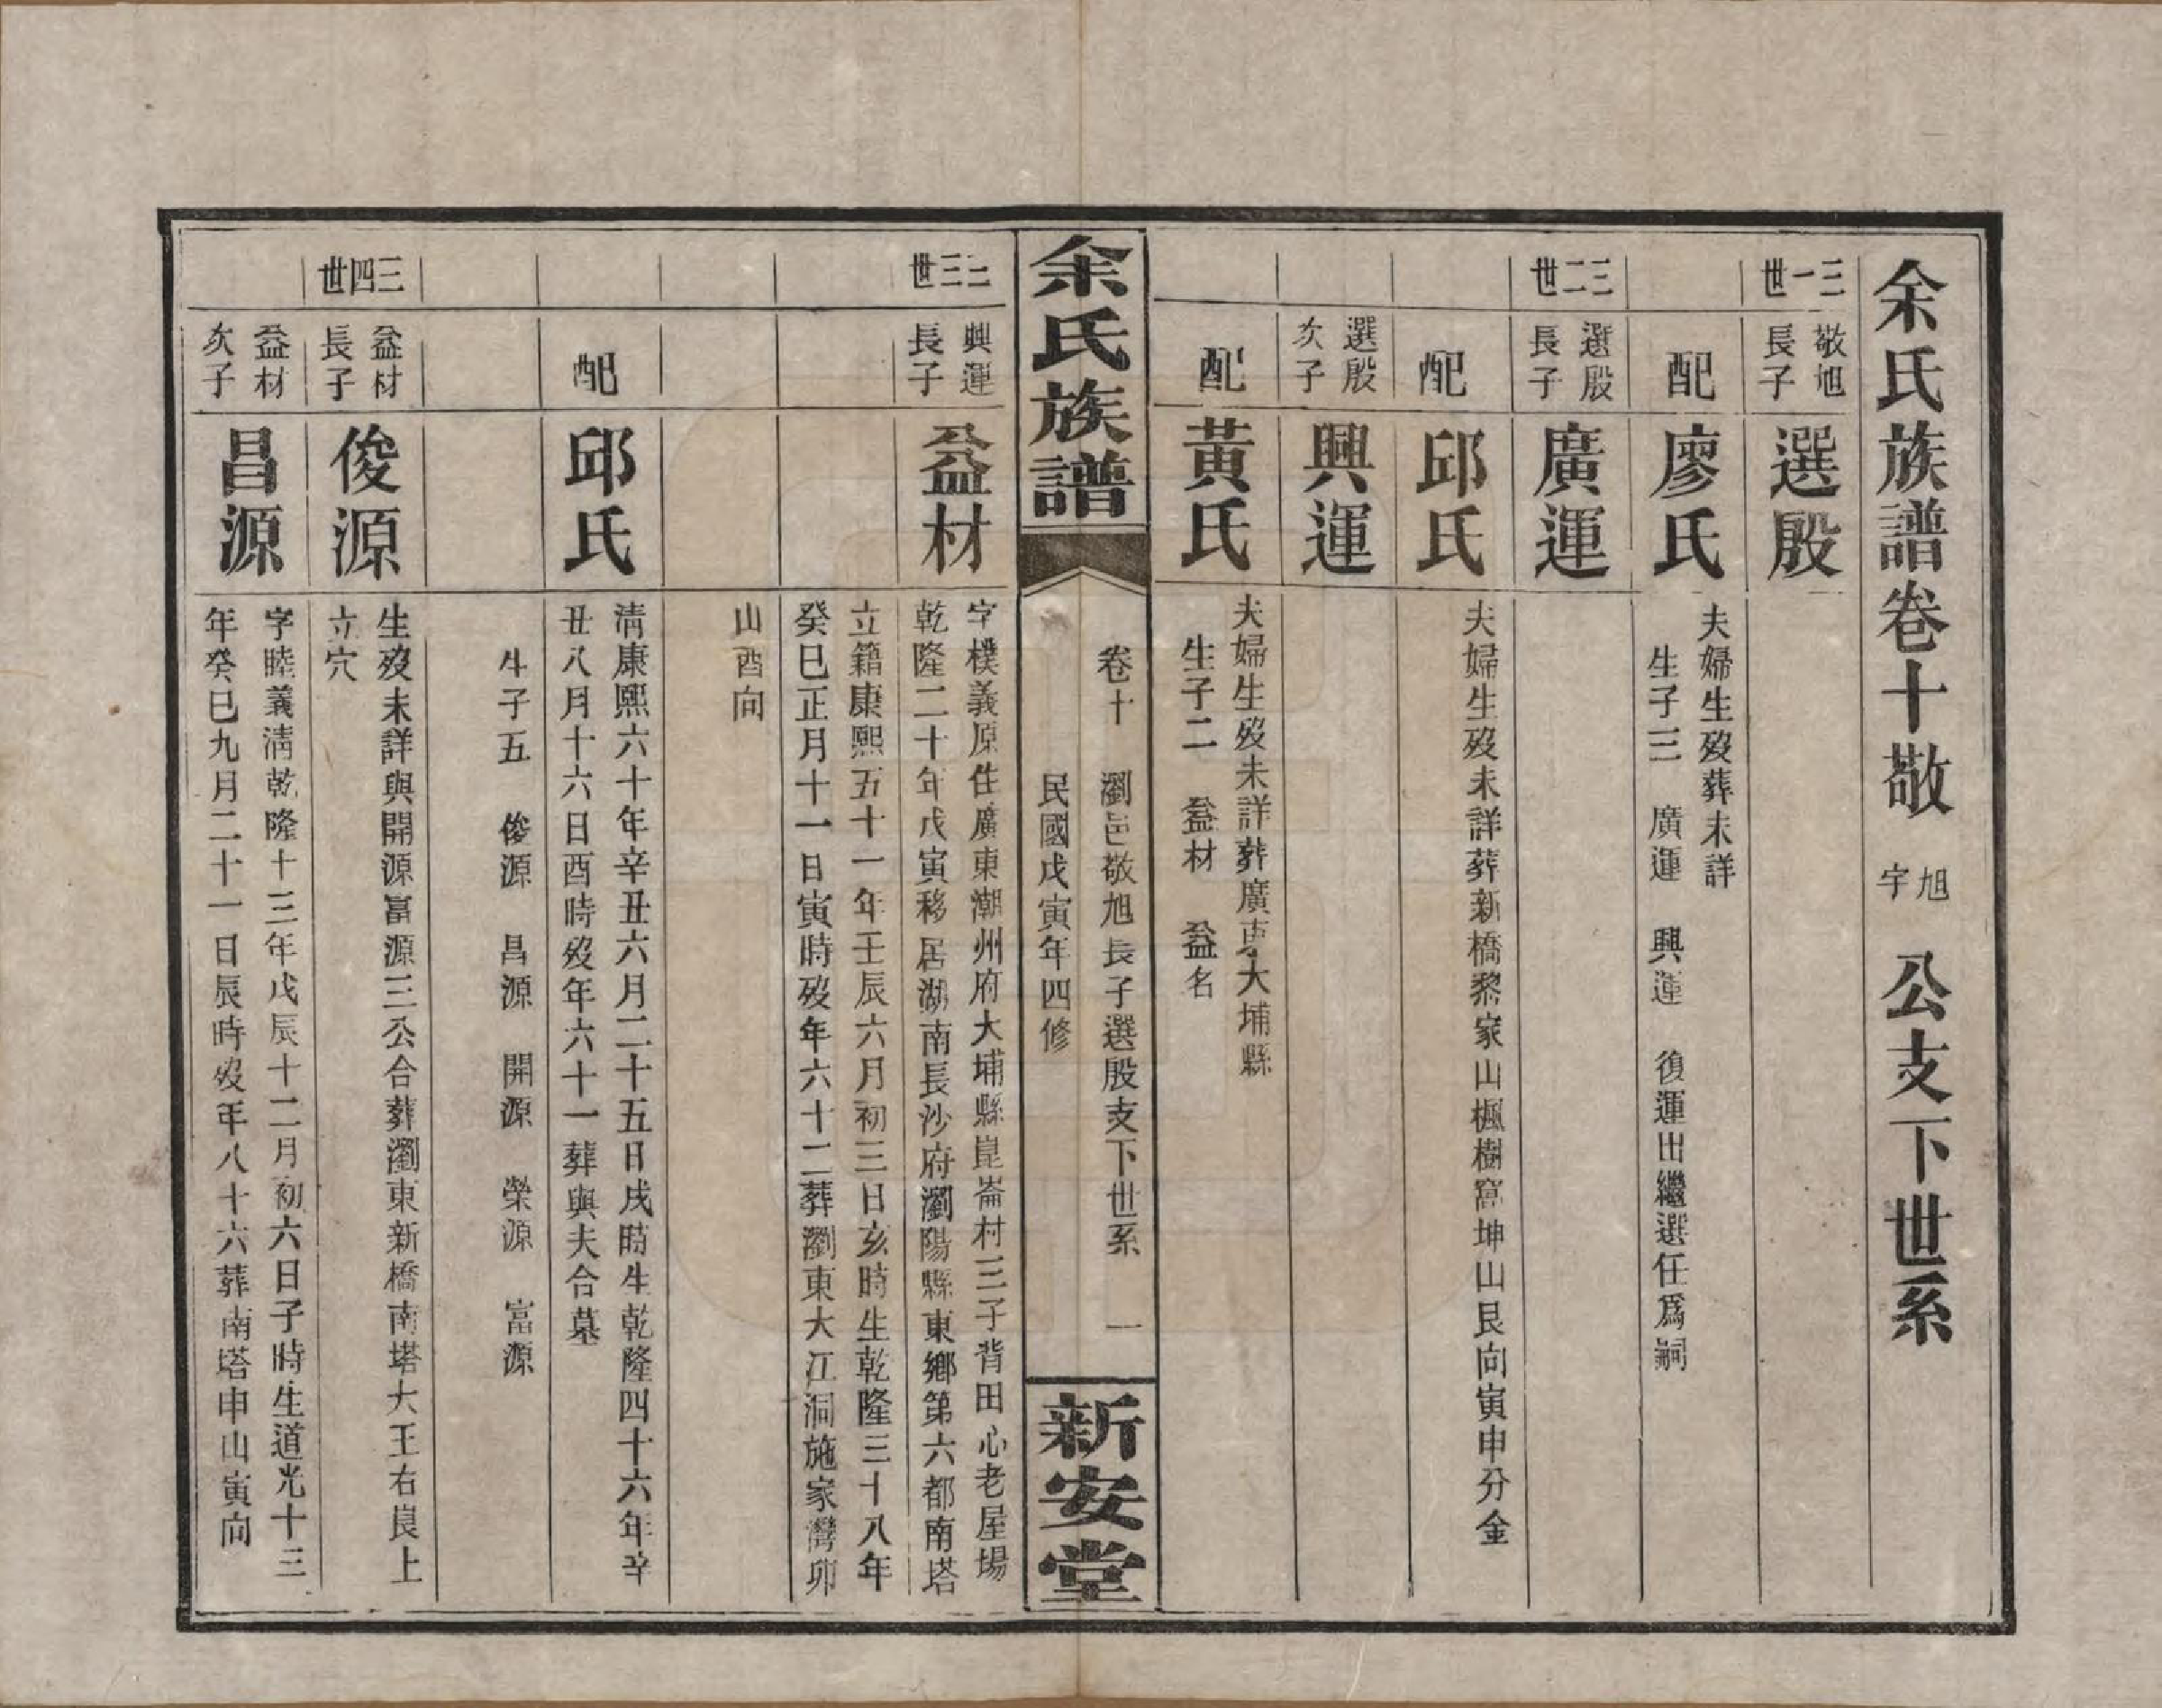 余氏族譜卷十敬旭字公支下世系
三一世
敬旭長子
選殷
配
廖氏
夫婦生歿葬未詳
生子三 廣運 興運 後運出繼選任爲嗣
三二世
選殷長子
廣運
配
邱氏
夫婦生歿未詳葬新橋黎家山楓樹窩坤山艮向寅申分金
選殷次子
興運
配
黃氏
夫婦生歿未詳葬廣東大埔縣
生子二 益材 益名
余氏族譜
卷十 瀏邑敬旭長子選殷支下世系 一
民國戊寅年四修
新安堂
三三世
興運長子
益材
字樸義原住廣東潮州府大埔縣崑崙村三子背田心老屋場
乾隆二十年戊寅移居湖南長沙府瀏陽縣東鄉第六都南塔
立籍康熙五十一年壬辰六月初三日亥時生乾隆三十八年
癸巳正月十一日寅時歿年六十二葬瀏東大江洞施家灣卯
山酉向
配
邱氏
清康熙六十年辛丑六月二十五日戌時生乾隆四十六年辛
丑八月十六日酉時歿年六十一葬與夫合墓
生子五 俊源 昌源 開源 榮源 富源
三四世
益材長子
俊源
生歿未詳與開源富源三公合葬瀏東新橋南塔大王右崀上
立穴
益材次子
昌源
字睦義清乾隆十三年戊辰十二月初六日子時生道光十三
年癸巳九月二十一日辰時歿年八十六葬南塔申山寅向